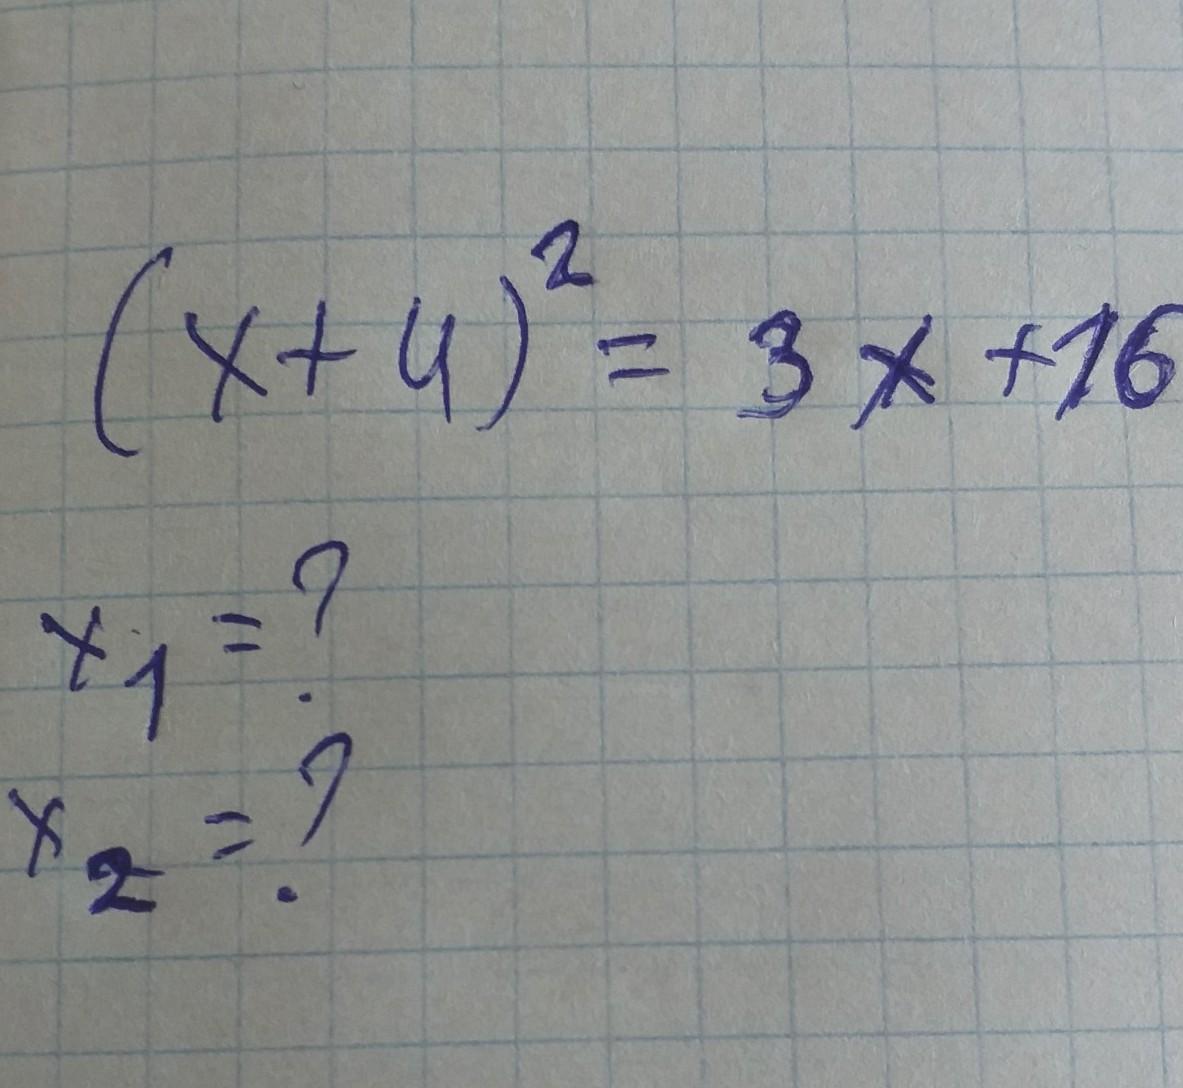 (x+4)² = 3x+16
x₁ = ?
x₂ = ?